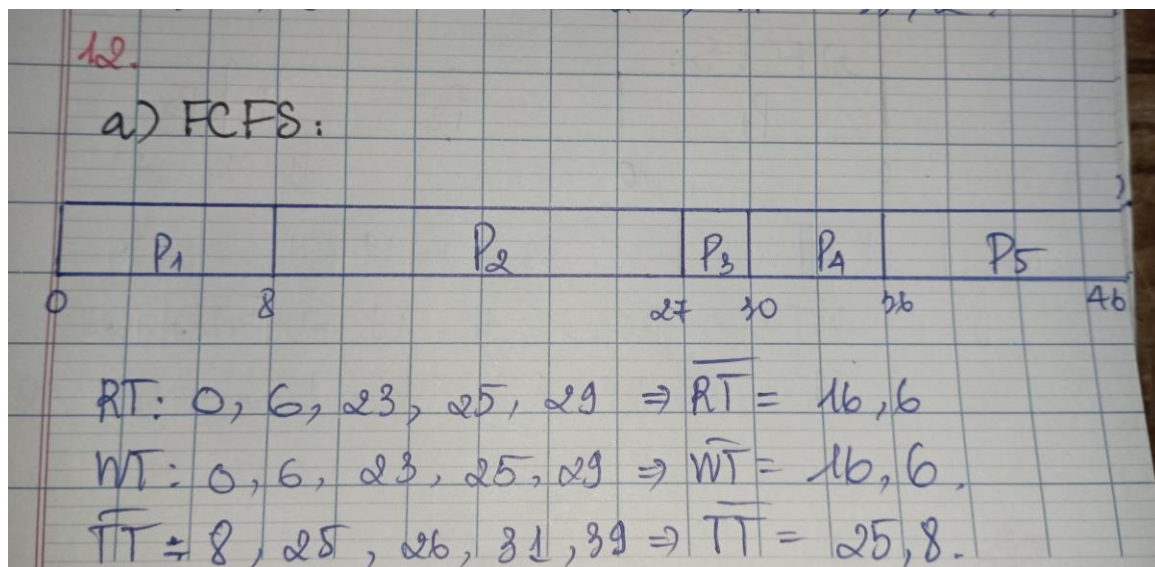 12.
a) FCFS:
P1 P2 P3 P4 P5
0 8 27 30 36 46
RT: 0, 6, 23, 25, 29 ⇒ R̅T̅ = 16,6
WT: 0, 6, 23, 25, 29 ⇒ W̅T̅ = 16,6.
T̅T̅ = 8, 25, 26, 31, 39 ⇒ T̅T̅ = 25,8.